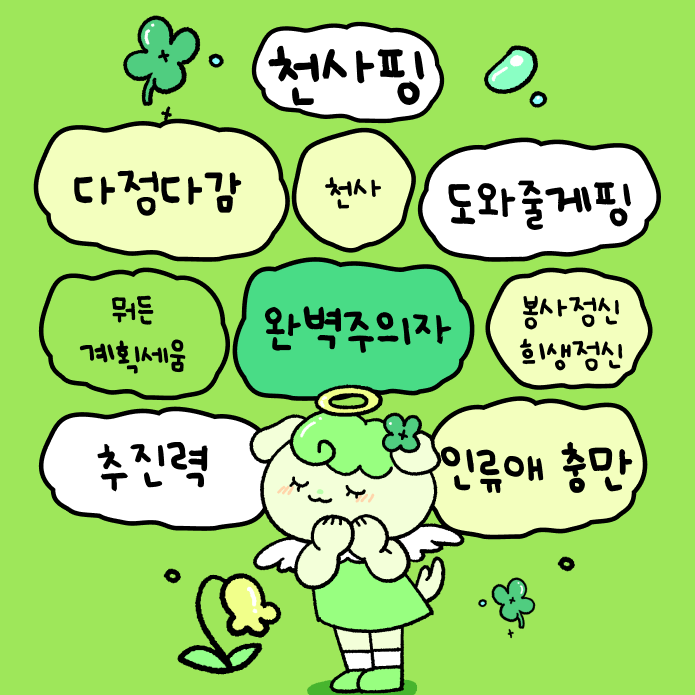 천사핑
다정다감
천사
도와줄게핑
뭐든
계획세움
완벽주의자
봉사정신
희생정신
추진력
인류애 충만